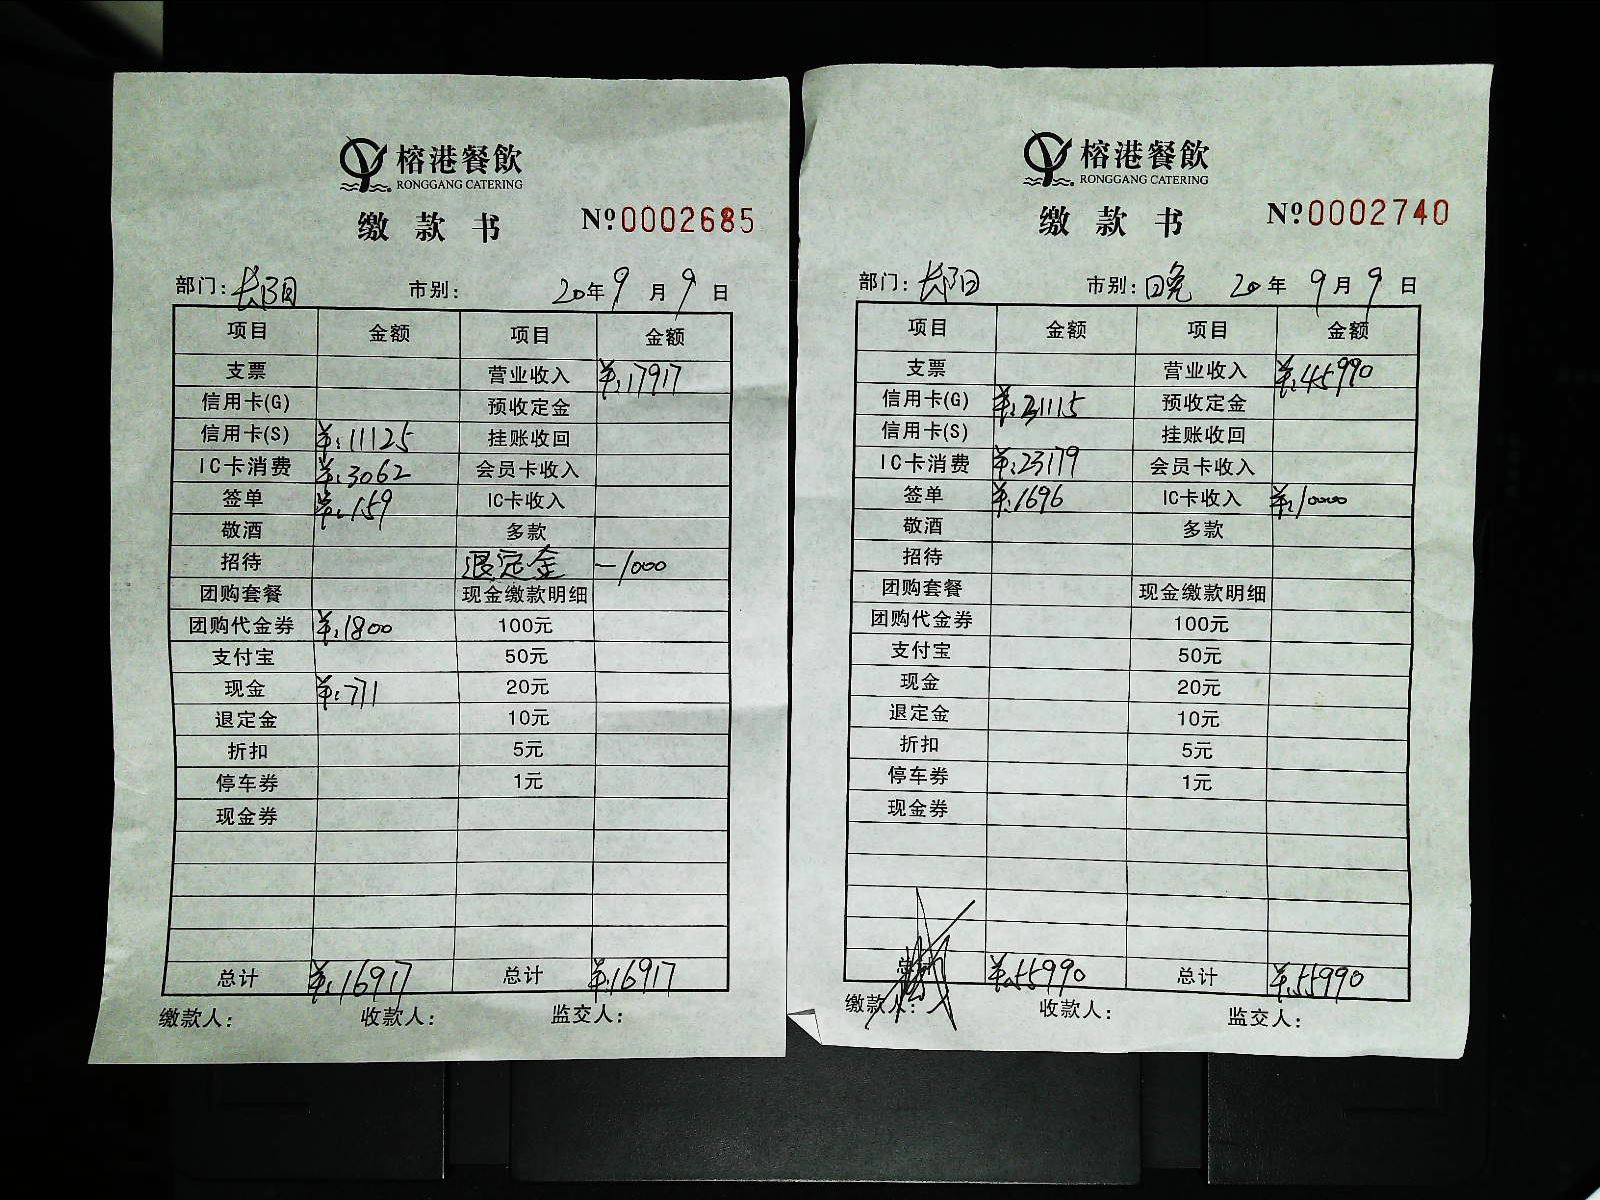 榕港餐飲
RONGGANG CATERING
缴款书 №0002685
部门: 长阳 市别: 20年9月9日
项目 金额 项目 金额
支票 营业收入 ¥:17917
信用卡(G) 预收定金
信用卡(S) ¥:11125 挂账收回
IC卡消费 ¥:3062 会员卡收入
签单 ¥:159 IC卡收入
敬酒 多款
招待 退定金 -1000
团购套餐 现金缴款明细
团购代金券 ¥:1800 100元
支付宝 50元
现金 ¥:771 20元
退定金 10元
折扣 5元
停车券 1元
现金券
总计 ¥:16917 总计 ¥:16917
缴款人: 收款人: 监交人:
榕港餐飲
RONGGANG CATERING
缴款书 №0002740
部门: 长阳 市别: 晚 20年9月9日
项目 金额 项目 金额
支票 营业收入 ¥:45990
信用卡(G) ¥:31115 预收定金
信用卡(S) 挂账收回
IC卡消费 ¥:23179 会员卡收入
签单 ¥:1696 IC卡收入 ¥:10000
敬酒 多款
招待
团购套餐 现金缴款明细
团购代金券 100元
支付宝 50元
现金 20元
退定金 10元
折扣 5元
停车券 1元
现金券
总计 ¥:55990 总计 ¥:55990
缴款人: 收款人: 监交人: